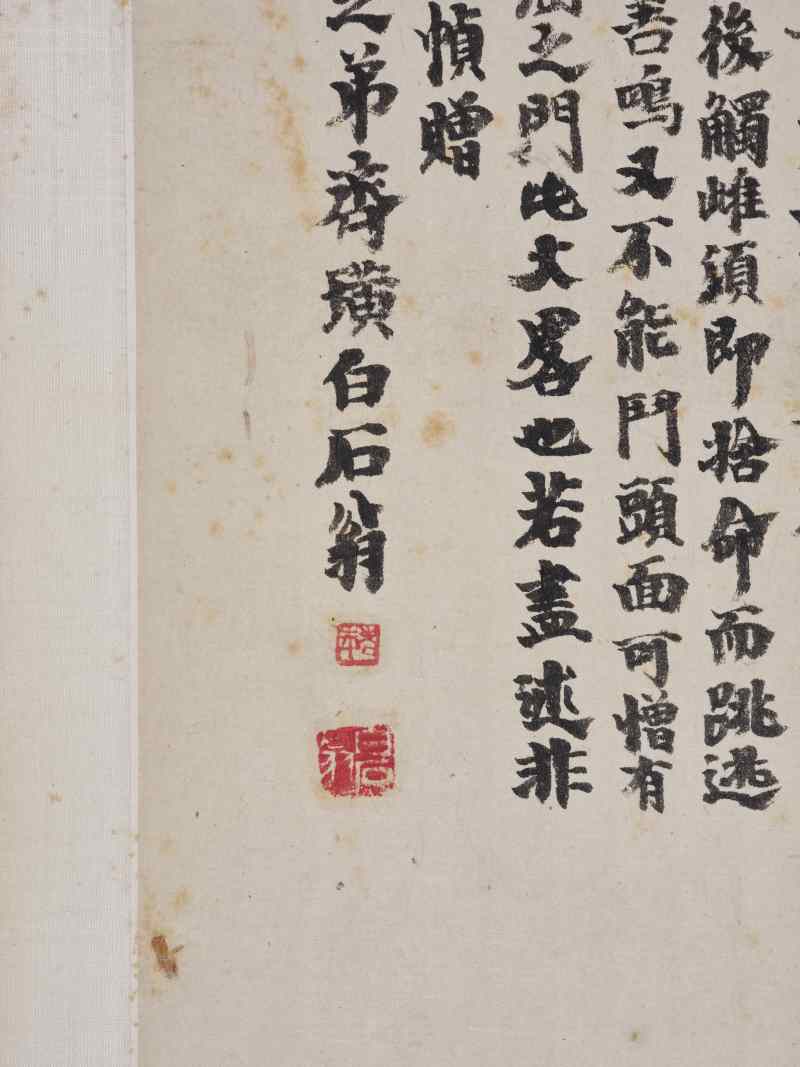 後觸雌頭即捨命而跳逃
善鳴又不能鬥頭面可憎有
之門此大畧也若盡述非
幀贈
之弟齊璜白石翁
白石翁